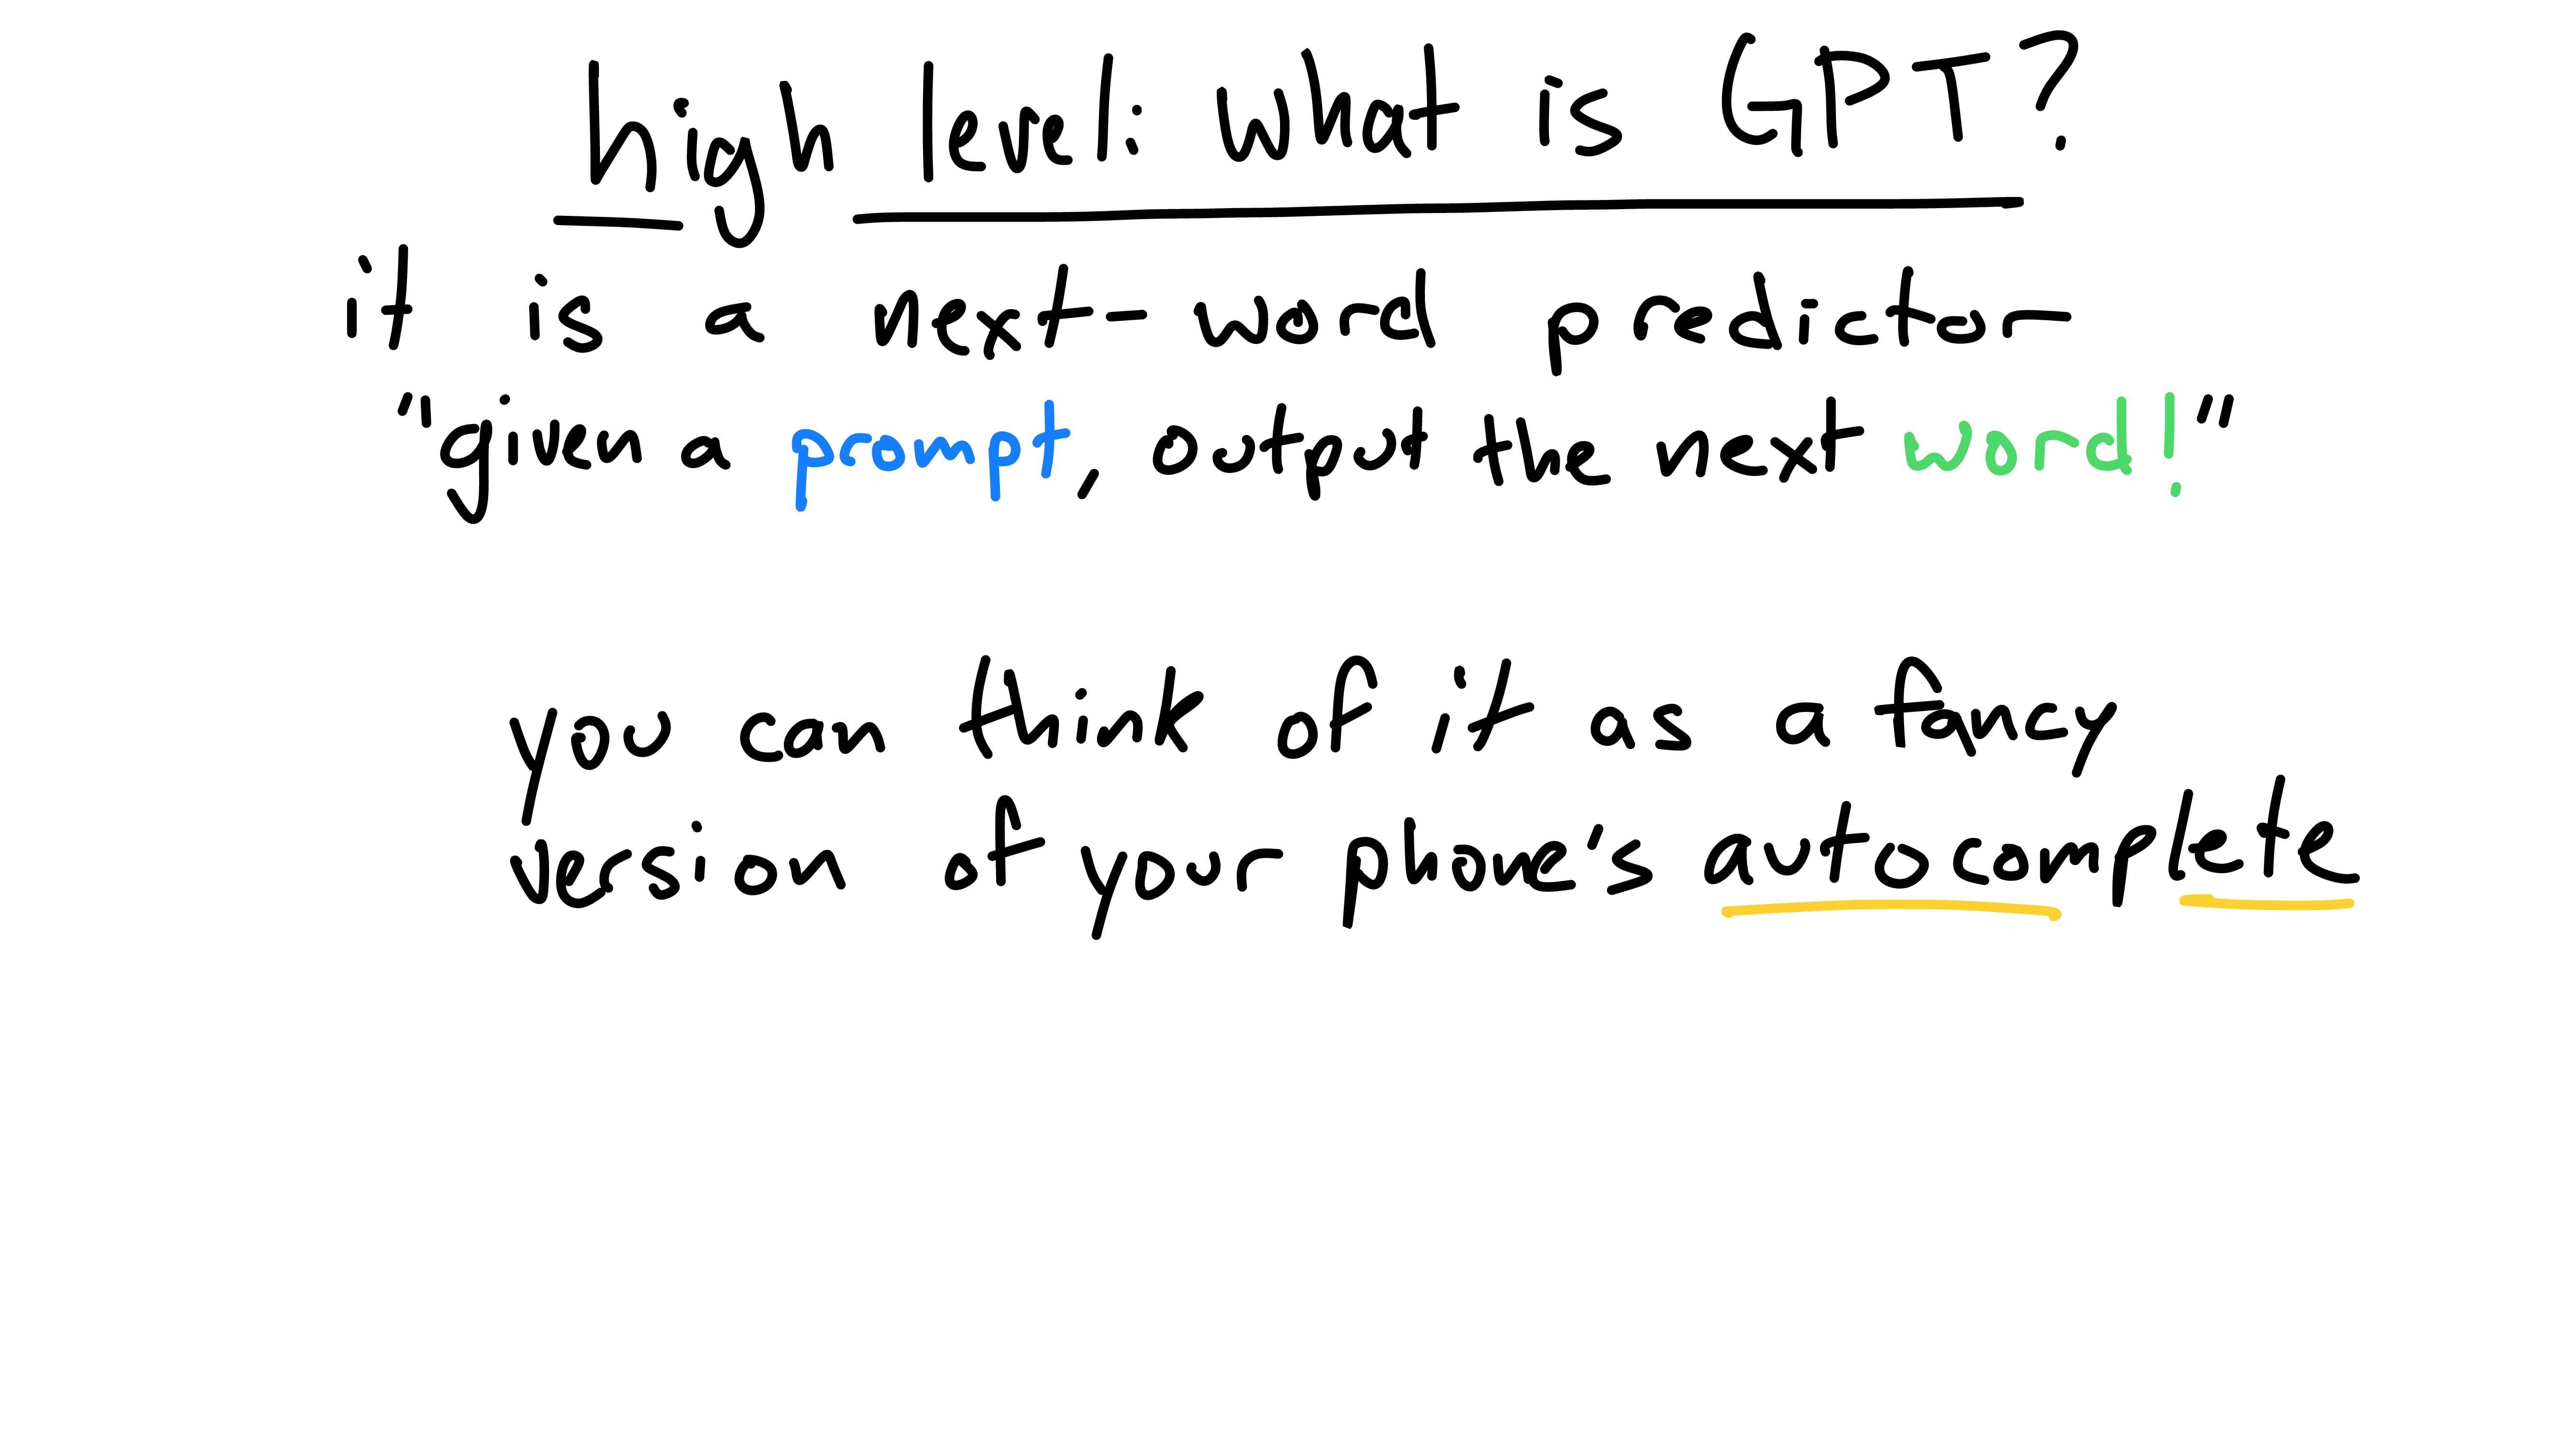 high level: what is GPT?
it is a next-word predictor
"given a prompt, output the next word!"
you can think of it as a fancy
version of your phone's autocomplete